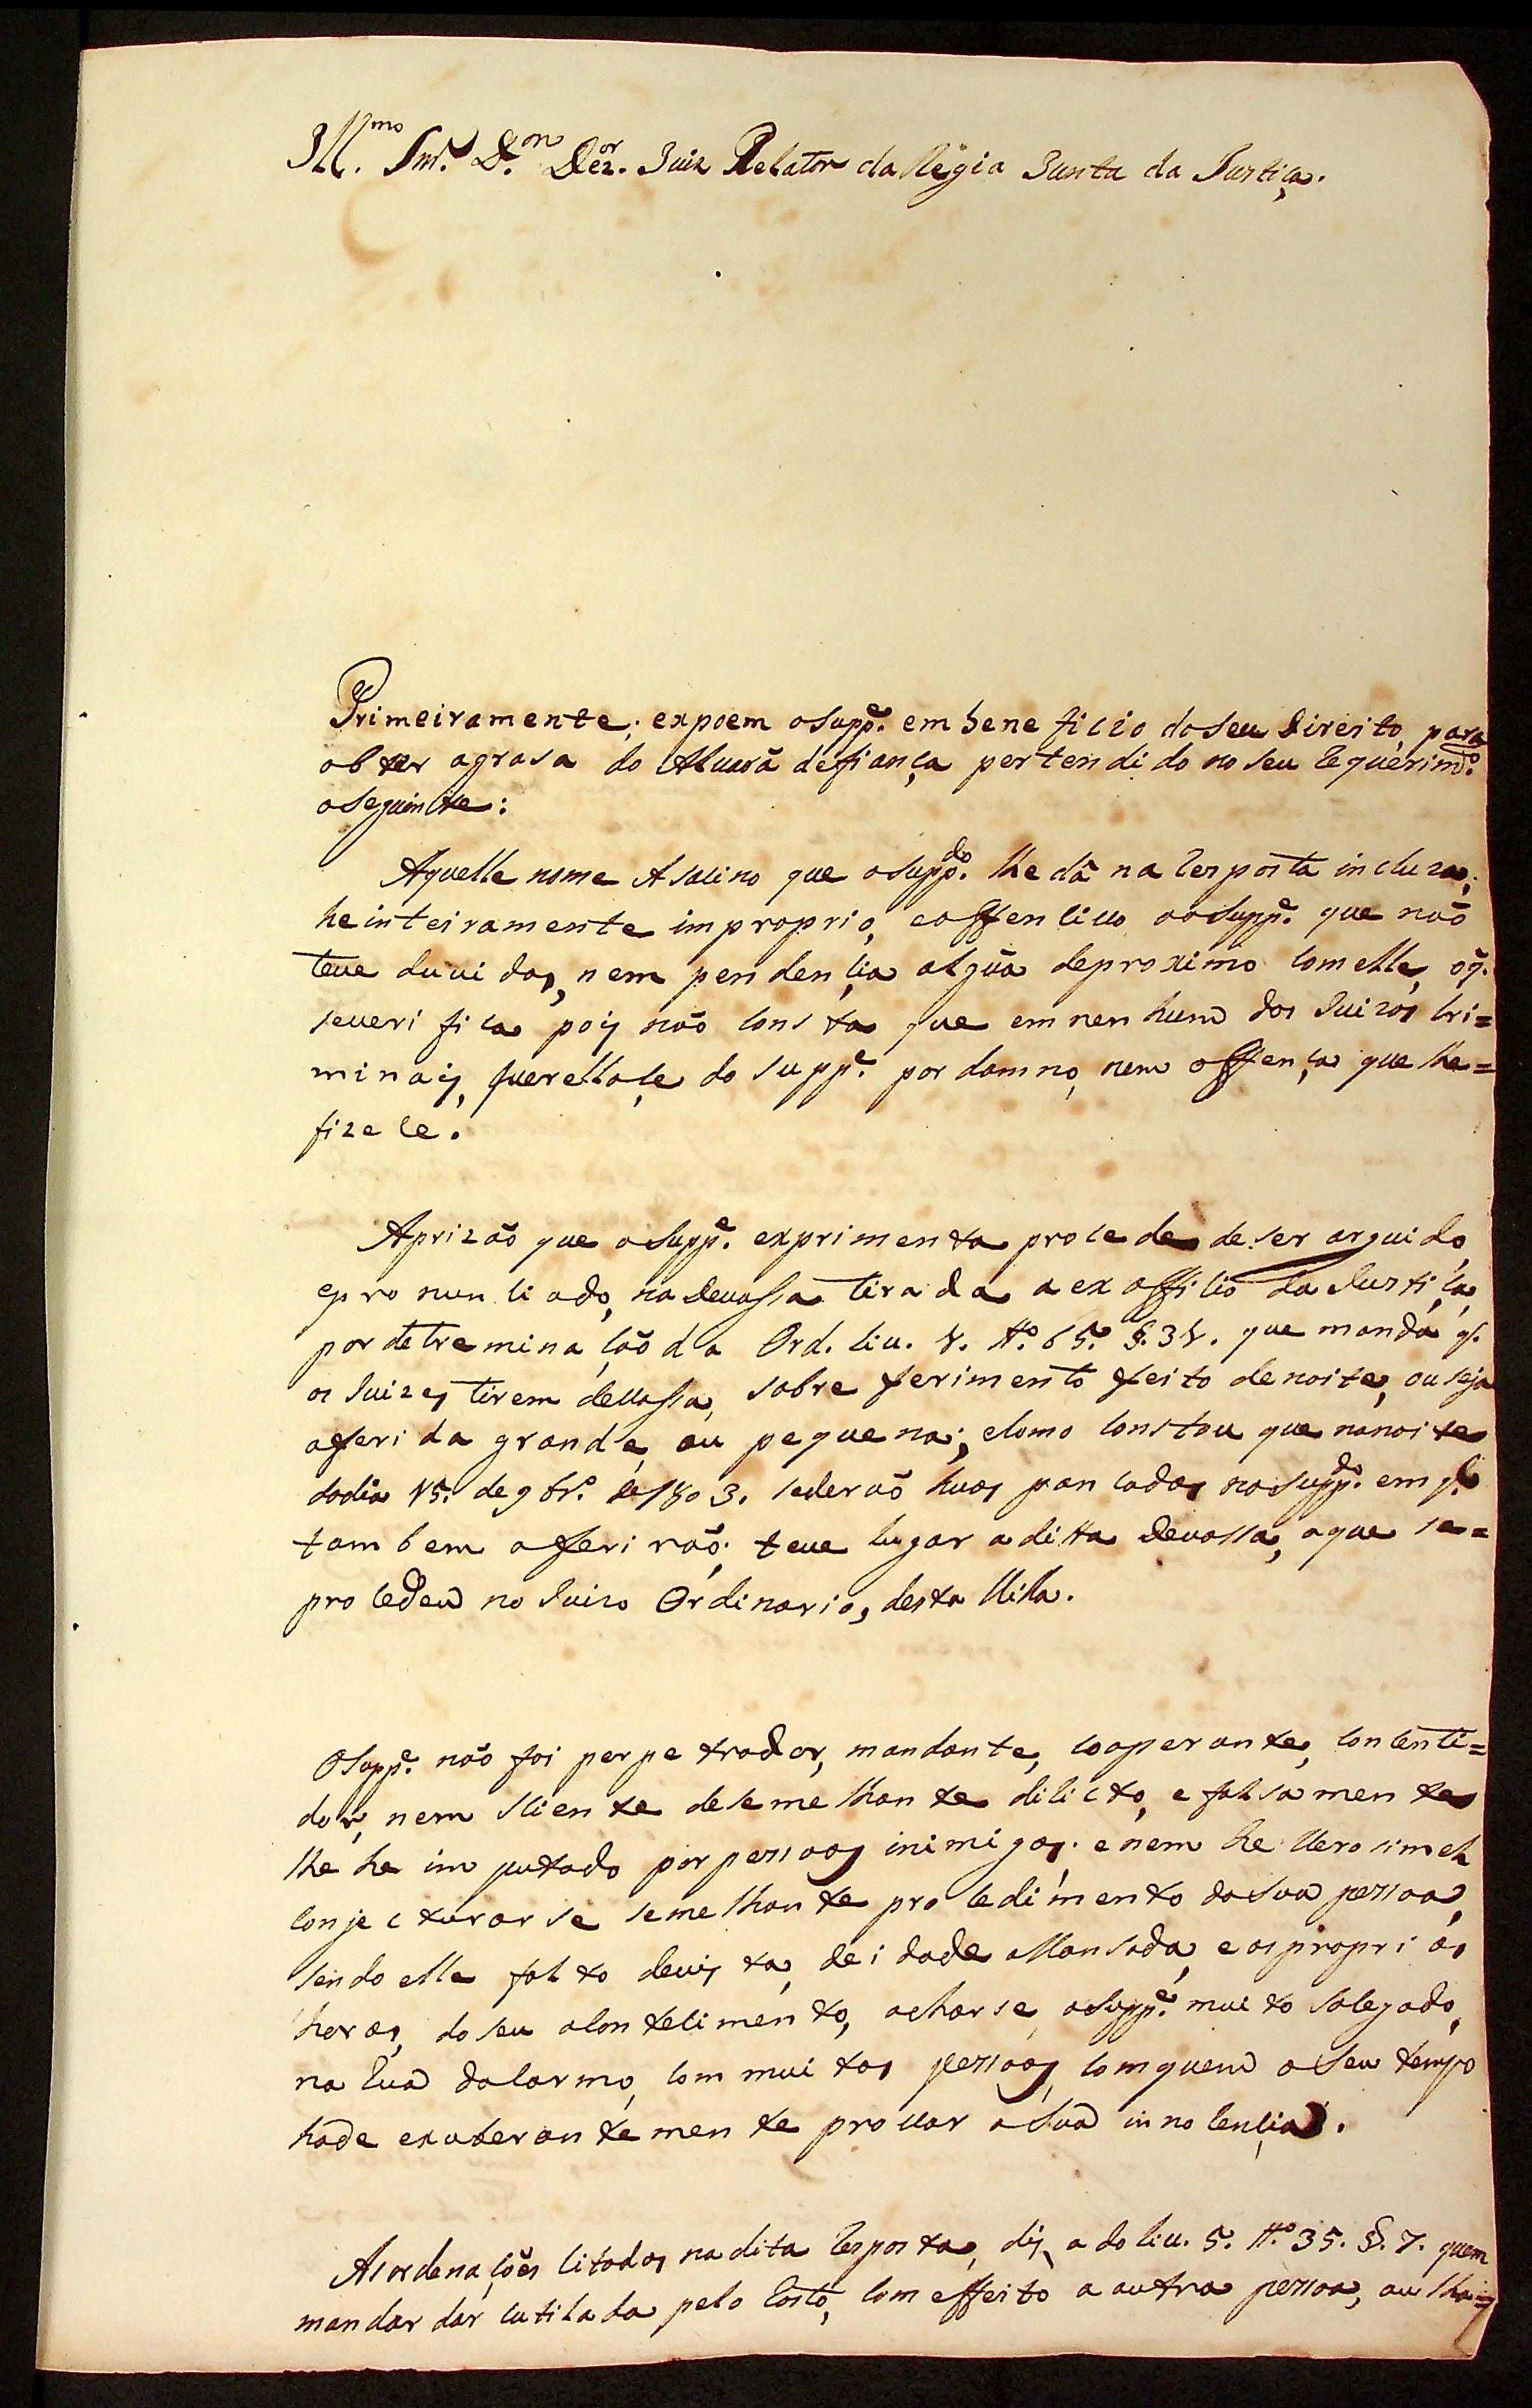 Ill.mo Snr. D.or Dez.or Juiz Relator da Regia Junta da Justiça.
Primeiramente; expoem o Supp.e em beneficio do seu Direito, para
obter a grasa do Alvará de fiança pertendido no seu requerim.to
o seguinte:
Aquelle nome Asacino que o Supp.do lhe dá na resposta incluza;
he inteiramente improprio, e offencivo ao Supp.e que naõ
teve duvidas, nem pendencia algũa de proximo com elle, o q.
se verifica pois naõ consta que em nenhum dos Juizos Cri=
minais, querellaçe do Supp.e por damno, nem offença que lhe=
fizece.
A prizaõ que o Supp.e exprimenta procede de ser arguido,
e pronunciado, na devassa tirada a ex officio da Justiça,
por detreminaçaõ da Ord. liv. 1. tt.o 65. §. 31. que manda q.
os Juizes tirem devassa, sobre ferimento feito de noite, ou seja
a ferida grande, ou pequena; e como constou que na noite
do dia 15. de 9br.o de 1803. se deraõ huas pancadas no Supp.do em q.
tambem o feriraõ; teve lugar a ditta devassa, a que se=
procedeu no Juizo Ordinario, desta Villa.
O Supp.e naõ foi perpetrador, mandante, cooperante, concenti=
dor, nem sciente de semelhante dilicto, e falsamente
lhe he imputado por pessoas inimigas; e nem he verosimel
conjecturarse semelhante procedimento da sua pessoa,
sendo elle falto de vista, de idade avansada, e as proprias
horas, do seu acontecimento, acharse, o Supp.e muito socegado,
na rua do Carmo, com muitas pessoas, com quem a seu tempo
hade exuberantemente provar a sua innocencia.
As ordenaçoẽs citadas na dita resposta, diz, a do liv. 5. tt.o 35. §. 7. quem
mandar dar cutilada pelo rosto, com effeito a outra pessoa, ou lha=